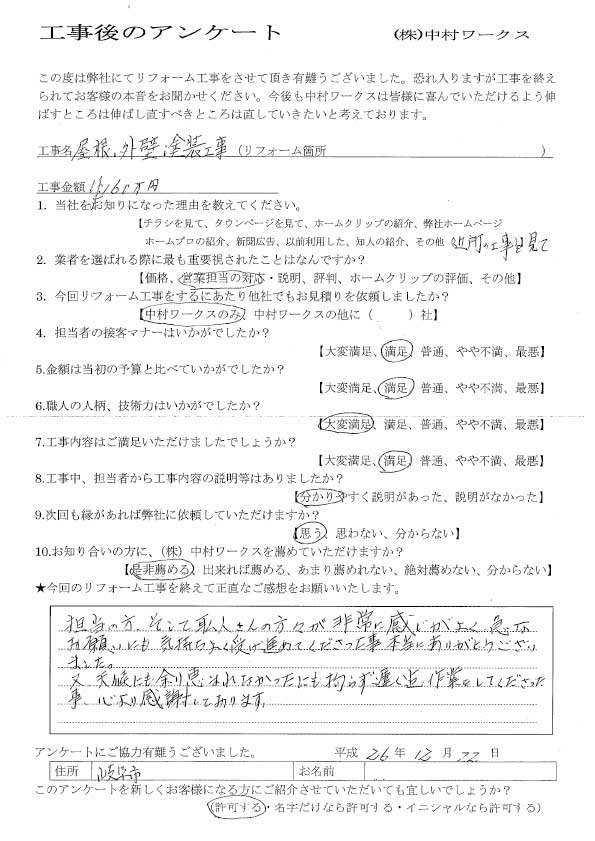 工事後のアンケート (株)中村ワークス
この度は弊社にてリフォーム工事をさせて頂き有難うございました。恐れ入りますが工事を終え
られてお客様の本音をお聞かせください。今後も中村ワークスは皆様に喜んでいただけるよう伸
ばすところは伸ばし直すべきところは直していきたいと考えております。
工事名 屋根、外壁塗装工事 (リフォーム箇所 )
工事金額 160万円
1. 当社をお知りになった理由を教えてください。
【チラシを見て、タウンページを見て、ホームクリップの紹介、弊社ホームページ
ホームプロの紹介、新聞広告、以前利用した、知人の紹介、その他 近所の工事を見て
2. 業者を選ばれる際に最も重要視されたことはなんですか?
【価格、営業担当の対応・説明、評判、ホームクリップの評価、その他】
3. 今回リフォーム工事をするにあたり他社でもお見積りを依頼しましたか?
【中村ワークスのみ、中村ワークスの他に( )社】
4. 担当者の接客マナーはいかがでしたか?
【大変満足、満足、普通、やや不満、最悪】
5.金額は当初の予算と比べていかがでしたか?
【大変満足、満足、普通、やや不満、最悪】
6.職人の人柄、技術力はいかがでしたか?
【大変満足、満足、普通、やや不満、最悪】
7.工事内容はご満足いただけましたでしょうか?
【大変満足、満足、普通、やや不満、最悪】
8.工事中、担当者から工事内容の説明等はありましたか?
【分かりやすく説明があった、説明がなかった】
9.次回も縁があれば弊社に依頼していただけますか?
【思う、思わない、分からない】
10.お知り合いの方に、(株)中村ワークスを薦めていただけますか?
【是非薦める、出来れば薦める、あまり薦めれない、絶対薦めない、分からない】
★今回のリフォーム工事を終えて正直なご感想をお願いいたします。
担当の方、そして職人さんの方々が非常に感じがよく急な
お願いにも気持ちよく受け進めてくださった事本当にありがとうござい
ました。
又天候にも余り恵まれなかったにも拘らず遅く迄作業をしてくださった
事、心より感謝しております。
アンケートにご協力有難うございました。 平成 26 年 12 月 22 日
住所 岐阜市 お名前
このアンケートを新しくお客様になる方にご紹介させていただいても宜しいでしょうか?
(許可する・名字だけなら許可する・イニシャルなら許可する)